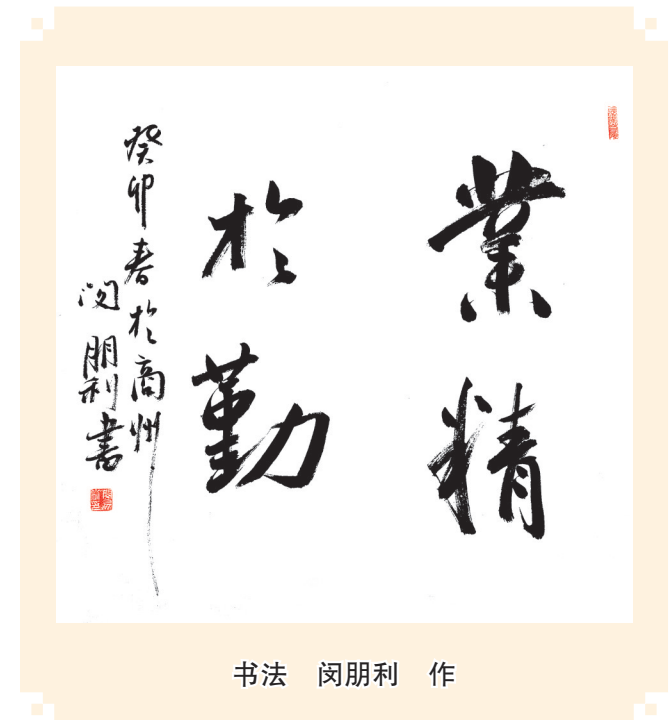 業精
於勤
癸卯春於商州
闵朋利書
书法 闵朋利 作